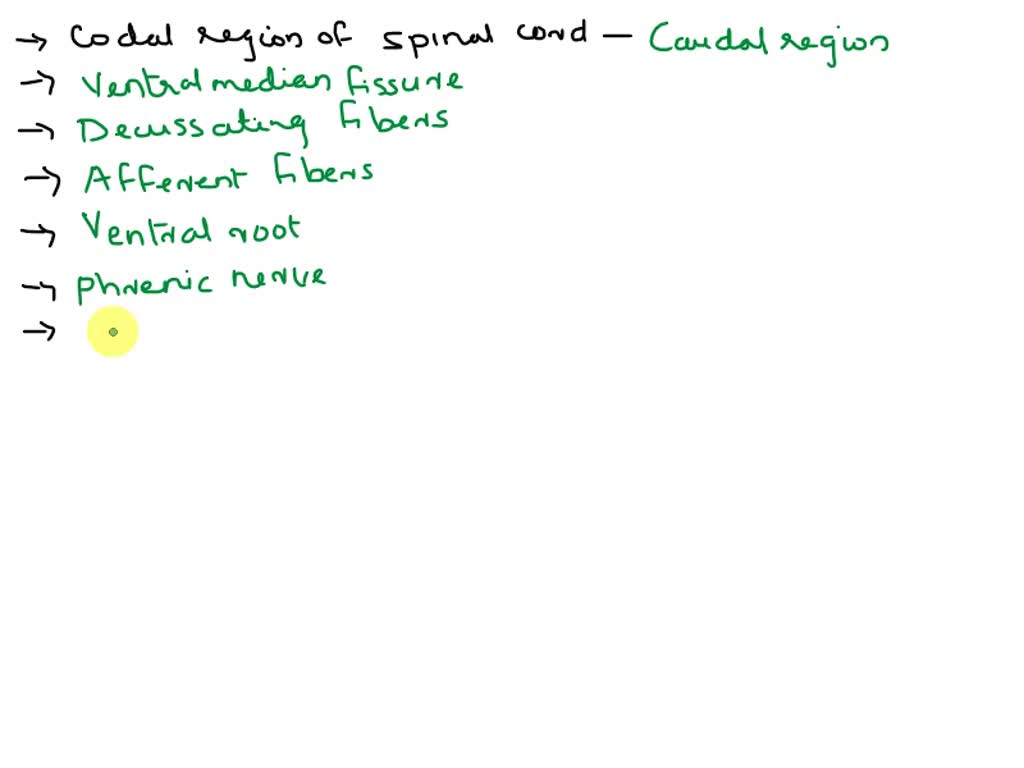 → Codal region of spinal cord – Caudal region
→ Ventral median fissure
→ Decussating fibers
→ Afferent fibers
→ Ventral root
→ Phrenic nerve
→